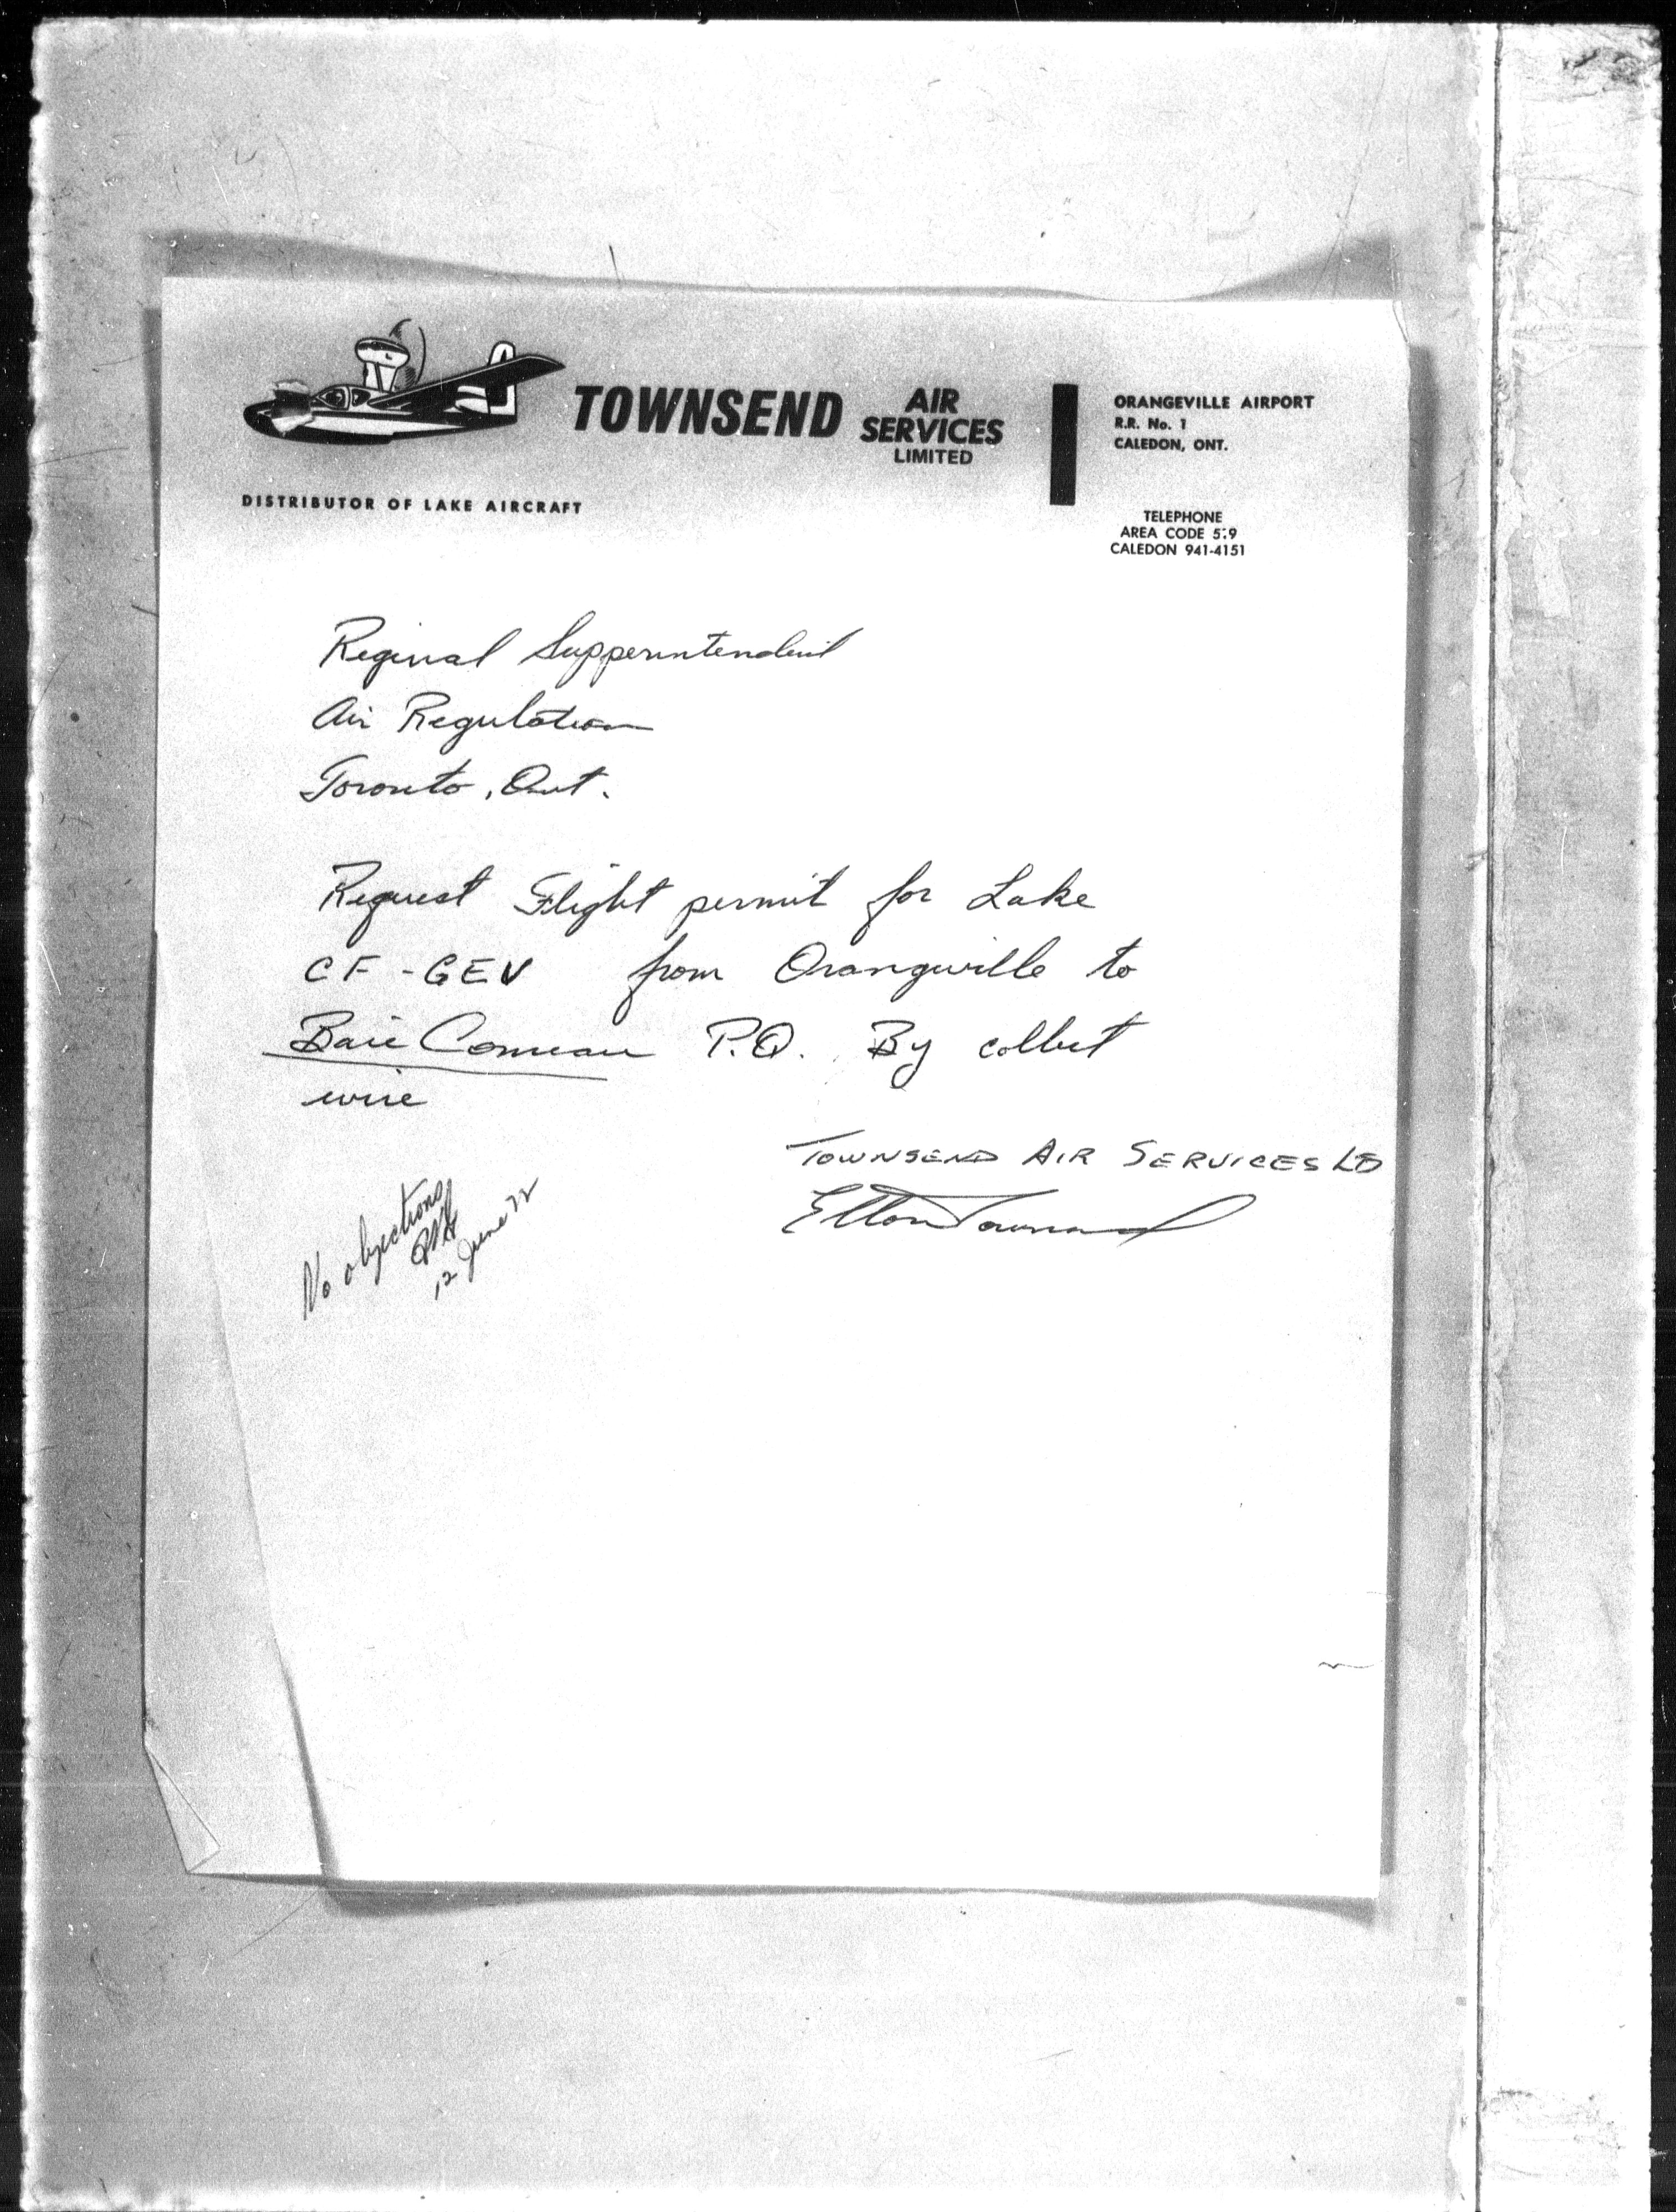 TOWNSEND AIR SERVICES LIMITED
DISTRIBUTOR OF LAKE AIRCRAFT
ORANGEVILLE AIRPORT
R.R. No. 1
CALEDON, ONT.
TELEPHONE
AREA CODE 519
CALEDON 941-4151
Reginal Supperintendent
Air Regulation
Toronto, Ont.
Request Flight permit for Lake
CF-GEV from Orangeville to
Baie Comeau P.Q. By collect
wire
TOWNSEND AIR SERVICES LTD
Elton Townsend
No objections
12 June 72